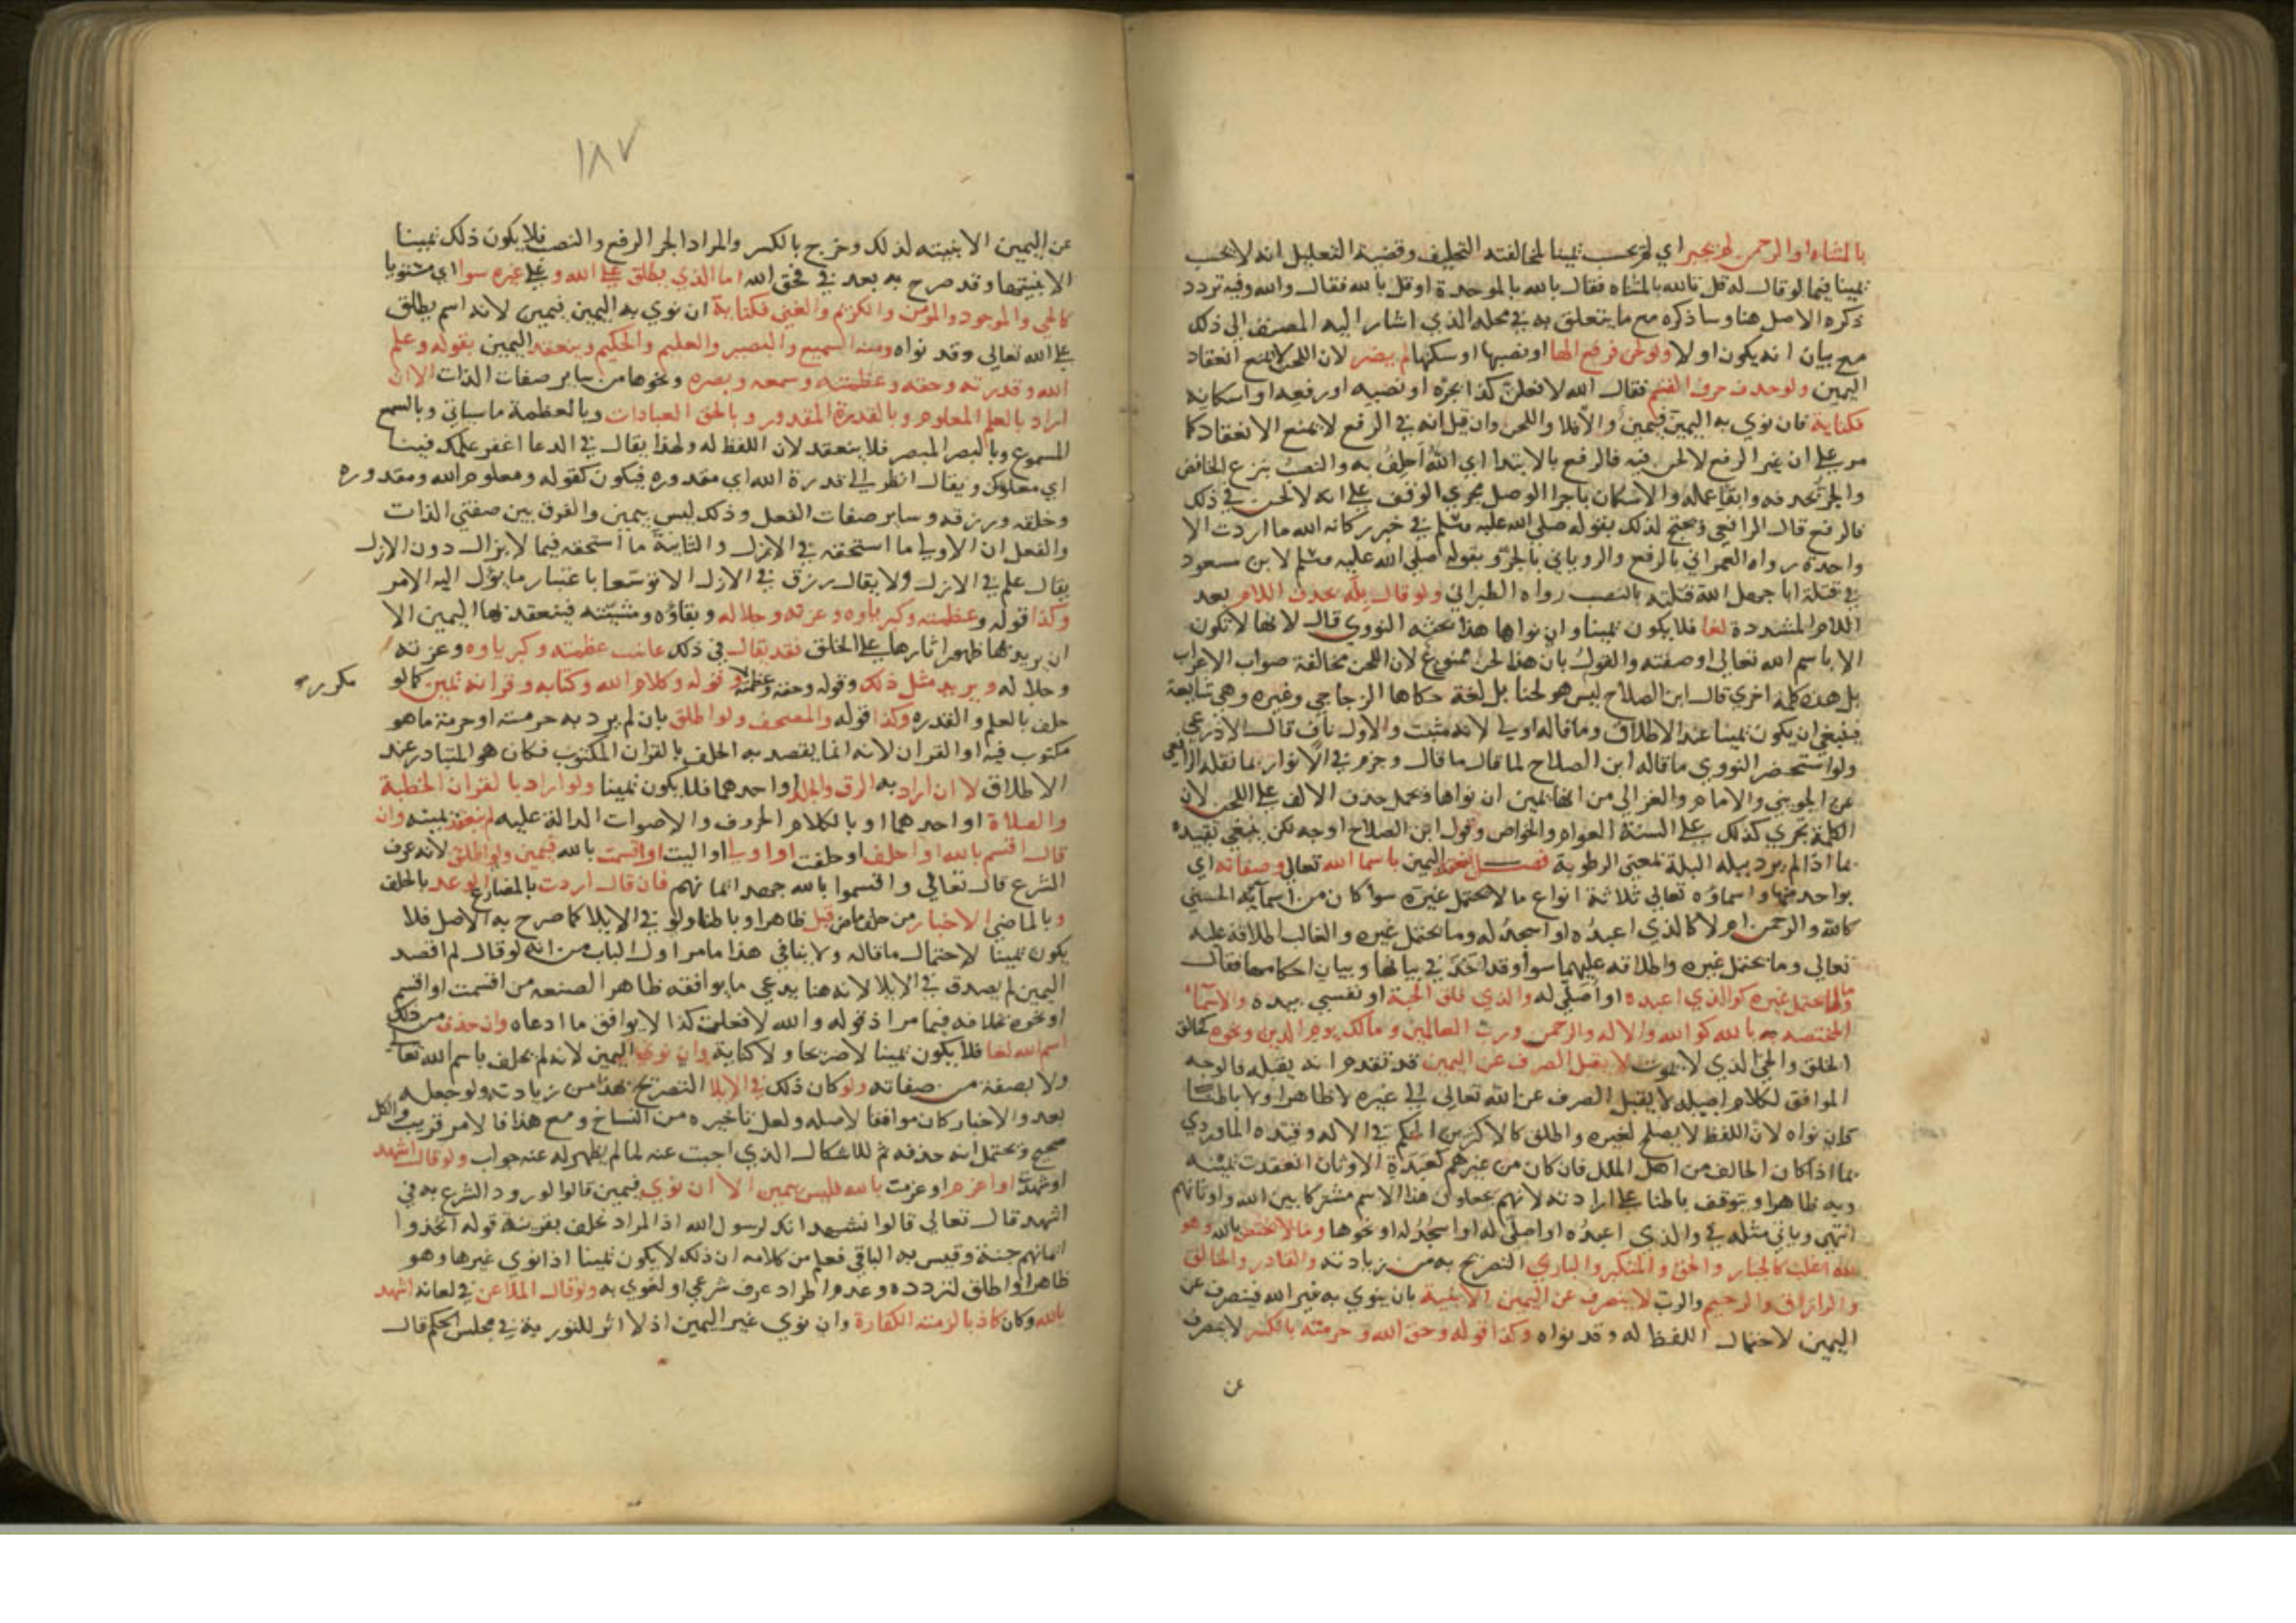 بالمثناه او الرحمن لم يجبر اي لم يحسب يمينا لمخالفته التحليف وقضية التعليل انه لا يحسب
يمينا فيما لو قال له قل تالله بالمثناه فقال بالله بالموحدة او قل بالله فقال والله وفيه تردد
ذكره الاصل هنا وساذكره مع ما يتعلق به في محله الذي اشار اليه المصنف الي ذلك
مع بيان انه يكون اولا ولو لحن فرفع الها او نصبها او سكنها لم يضر لان اللحن لا يمنع انعقاد
اليمين ولو حذف حرف القسم فقال الله لافعلن كذا بجره او نصبه او رفعه او اسكانه
فكناية فان نوي به اليمين فيمين والا فلا واللحن وان قيل انه في الرفع لا يمنع الانعقاد كما
مر علي ان غير الرفع لا لحن فيه فالرفع بالابتدا اي الله احلف به والنصب بنزع الخافض
والجر بحذفه وابقا عمله والاسكان باجرا الوصل مجري الوقف علي انه لا لحن في ذلك
فالرفع قال الرافعي ويحتج لذلك بقوله صلي الله عليه وسلم في خبر ركانه الله ما اردت الا
واحدة رواه العمراني بالرفع والروياني بالجر وبقوله صلي الله عليه وسلم لابن مسعود
في قتله ابا جهل الله قتلته بالنصب رواه الطبراني ولو قال بله بحذف اللام بعد
اللام المشددة لغا فلا يكون يمينا وان نواها هذا بحثه النووي قال لانها لا تكون
الا باسم الله تعالي او صفته والقول بان هذا لحن ممنوع لان اللحن مخالفة صواب الاعراب
بل هذه كلمة اخري قال ابن الصلاح ليس هو لحنا بل لغة حكاها الزجاجي وغيره وهي شايعة
فينبغي ان يكون يمينا عند الاطلاق وما قاله اولي لانه مثبت والاول ناف قال الاذرعي
ولو استحضر النووي ما قاله ابن الصلاح لما قال ما قال وجزم في الانوار بما نقله الرافعي
عن الجويني والامام والغزالي من انها يمين ان نواها ويحمل حذف الالف علي اللحن لان
الكلمة تجري كذلك علي السنة العوام والخواص وقول ابن الصلاح اوجه لكن ينبغي تقييده
بما اذا لم يرد ببله البلة بمعني الرطوبة فصل تنعقد اليمين باسما الله تعالي وصفاته اي
بواحد منها واسماؤه تعالي ثلاثة انواع ما لا يحتمل غيره سوا كان من اسمائه الحسني
كالله والرحمن ام لا كالذي اعبده او اسجد له وما يحتمل غيره والغالب اطلاقه عليه
تعالي وما يحتمل غيره واطلاقه عليهما سوا وقد اخذ في بيانها وبيان احكامها فقال
فما لا يحتمل غيره كوالذي اعبده او اصلي له والذي فلق الحبة او نفسي بيده والاسما
المختصه به بالله كوالله والاله والرحمن ورب العالمين ومالك يوم الدين ونحوه كخالق
الخلق والحي الذي لا يموت لا يقبل الصرف عن اليمين قد تقدم انه يقبله فالوجه
الموافق لكلام اصله لا يقبل الصرف عن الله تعالي الي غيره لا ظاهرا ولا باطنا
كان نواه لان اللفظ لا يصلح لغيره واطلق كالاكثرين الحكم في الاله وقيده الماوردي
بما اذا كان الحالف من اهل الملل فان كان من غيرهم كعبدة الاوثان انعقدت يمينه
به ظاهرا وتتوقف باطنا علي ارادته لانهم يجعلون هذا الاسم مشتركا بين الله واوثانهم
انتهي وياتي مثله في والذي اعبده او اصلي له او اسجد له او نحوها وما لا يختص بالله وهو
لله اغلب كالجبار والحق والمتكبر والباري التصريح به من زيادته والقادر والخالق
والرازق والرحيم والرب لا ينصرف عن اليمين الا بنية بان ينوي به غير الله فينصرف عن
اليمين لاحتمال اللفظ له وقد نواه وكذا قوله وحق الله وحرمته بالكسر لا ينصرف
عن
١٨٧
عن اليمين الا بنيته لذلك وخرج بالكسر والمراد الجر الرفع والنصب فلا يكون ذلك يمينا
الا بنيتها وقد صرح به بعد في فحق الله اما الذي يطلق علي الله وعلي غيره سوا اي مستويا
كالحي والموجود والمؤمن والكريم والغني فكناية ان نوي به اليمين فيمين لانه اسم يطلق
علي الله تعالي وقد نواه ومنه السميع والبصير والعليم والحكيم وينعقد اليمين بقوله وعلم
الله وقدرته وحقه وعظمته وسمعه وبصره ونحوها من ساير صفات الذات الا ان
اراد بالعلم المعلوم وبالقدرة المقدور وبالحق العبادات وبالعظمة ما سياتي وبالسمع
المسموع وبالبصر المبصر فلا ينعقد لان اللفظ له ولهذا يقال في الدعا اغفر علمك فينا
اي معلومك ويقال انظر الي قدرة الله اي مقدوره فيكون كقوله ومعلوم الله ومقدوره
وخلقه ورزقه وساير صفات الفعل وذلك ليس بيمين والفرق بين صفتي الذات
والفعل ان الاولي ما استحقه في الازل والثانية ما استحقه فيما لا يزال دون الازل
يقال علم في الازل ولا يقال رزق في الازل الا توسعا باعتبار ما يؤل اليه الامر
وكذا قوله وعظمته وكبرياوه وعزته وجلاله وبقاؤه ومشيئته فينعقد بها اليمين الا
ان يريد بها ظهور اثارها علي الخلق فقد يقال في ذلك عاينت عظمته وكبرياوه وعزته
وجلاله ويريد مثل ذلك وقوله وحقه وعظمته وقوله وكلام الله وكتابه وقرانه يمين كما لو
مكرر
حلف بالعلم والقدره وكذا قوله والمصحف ولو اطلق بان لم يرد به حرمته او حرمة ما هو
مكتوب فيه او القران لانه انما يقصد به الحلف بالقران المكتوب فكان هو المتبادر عند
الاطلاق لا ان اراد به الرق والجلد او احدهما فلا يكون يمينا ولو اراد بالقران الخطبة
والصلاة او احدهما او بالكلام الحروف والاصوات الدالة عليه لم تنعقد يمينه وان
قال اقسم بالله او احلف او حلفت او اولي او اليت او اقسمت بالله فيمين ولو اطلق لانه عرف
الشرع قال تعالي واقسموا بالله جهد ايمانهم فان قال اردت بالمضارع الوعد بالحلف
وبالماضي الاخبار من حلف ماض قبل ظاهرا وباطنا ولو في الايلا كما صرح به الاصل فلا
يكون يمينا لاحتمال ما قاله ولا ينافي هذا ما مر اول الباب من انه لو قال لم اقصد
اليمين لم يصدق في الايلا لانه هنا يدعي ما يوافقه ظاهر الصنعه من اقسمت او اقسم
او نحوه بخلافه فيما مر اذ قوله والله لافعلن كذا لا يوافق ما ادعاه وان حذف من ذلك
اسم الله لغا فلا يكون يمينا لا صريحا ولا كناية وان نوي اليمين لانه لم يحلف باسم الله تعالي
ولا بصفة من صفاته ولو كان ذلك في الايلا التصريح بهذا من زيادته ولو جعله
بعد والاخبار كان موافقا لاصله ولعل تاخيره من النساخ ومع هذا فالامر قريب والكل
صحيح ويحتمل انه حذفه ثم للاشكال الذي اجبت عنه لما لم يظهر له عنه جواب ولو قال اشهد
او شهدت او اعزم او عزمت بالله فليس بيمين الا ان نوي فيمين قالوا لورود الشرع به في
اشهد قال تعالي قالوا نشهد انك لرسول الله اذ المراد نحلف بقرينة قوله اتخذوا
ايمانهم جنة وقيس به الباقي فعلم من كلامه ان ذلك لا يكون يمينا اذا نوي غيرها وهو
ظاهر او اطلق لتردده وعدم اطراد عرف شرعي او لغوي به ولو قال الملاعن في لعانه اشهد
بالله وكان كاذبا لزمته الكفارة وان نوي غير اليمين اذ لا اثر للتورية في مجلس الحكم قال